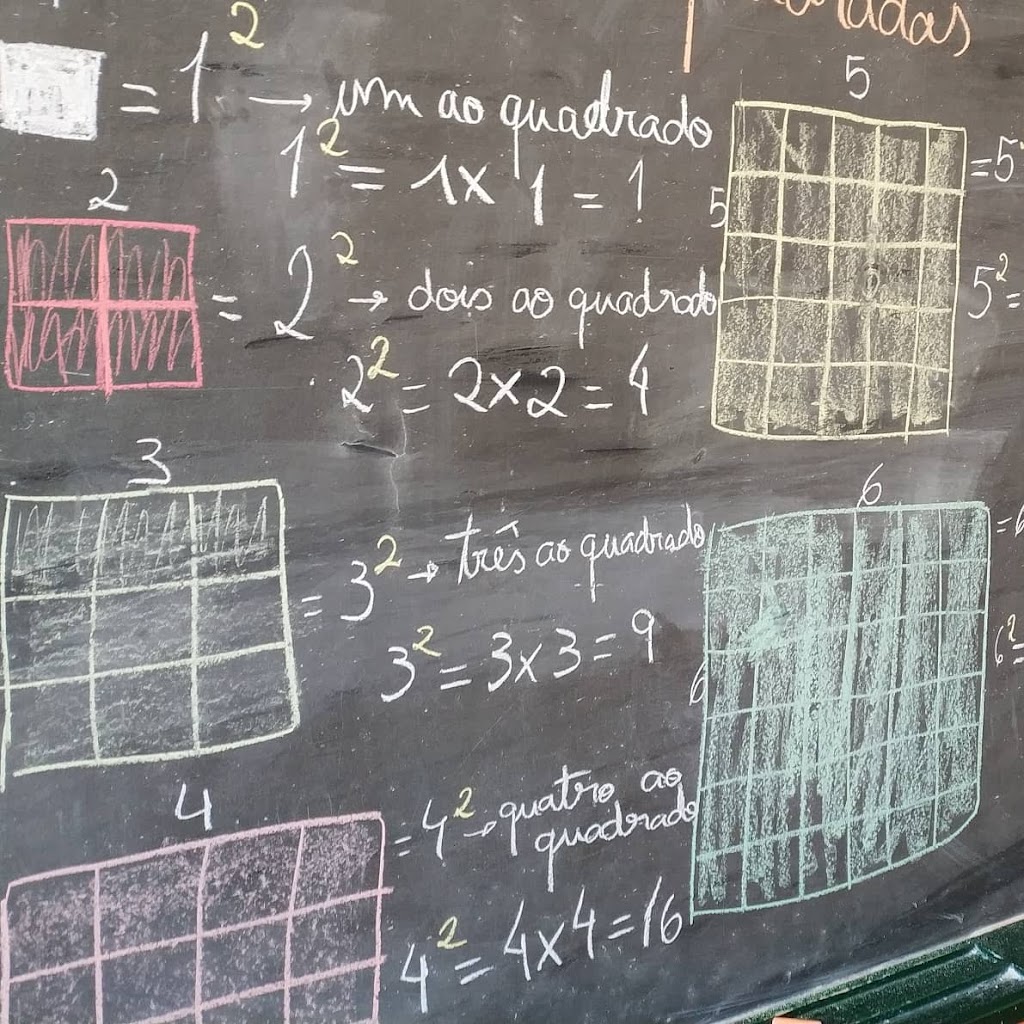 = 1² → um ao quadrado
1² = 1x1 = 1
2
= 2² → dois ao quadrado
2² = 2x2 = 4
3
= 3² → três ao quadrado
3² = 3x3 = 9
4
= 4² → quatro ao
quadrado
4² = 4x4 = 16
5
5
= 5
5² =
6
6
= 6
6² =